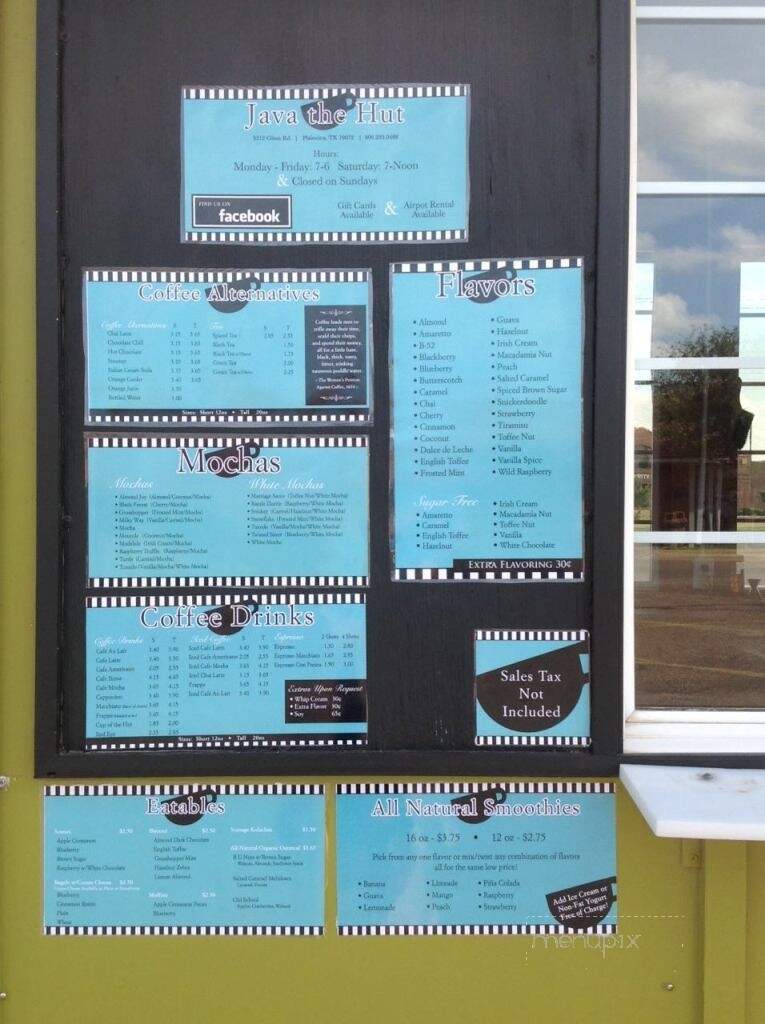 Java the Hut
Plainview, TX 79072
Hours:
Monday - Friday: 7-6 Saturday: 7-Noon
& Closed on Sundays
FIND US ON
facebook
Gift Cards Available & Airpot Rental Available
Coffee Alternatives
Coffee Alternatives S T
Chai Latte 3.15 3.65
Chocolate Chill 3.15 3.65
Hot Chocolate
Steamer
Italian Cream Soda
Orange Cooler 3.40 3.65
Orange Juice 1.50
Bottled Water 1.00
Tea S T
Spiced Tea 2.05 2.55
Black Tea 1.50
Green Tea 2.00
Coffee leads men to
trifle away their time,
scald their chops,
and spend their money,
all for a little base,
black, thick, nasty,
bitter, stinking
nauseous puddle water.
- The Women's Petition
Against Coffee, 1674 -
Sizes: Short 12oz • Tall 20oz
Flavors
• Almond
• Amaretto
• B-52
• Blackberry
• Blueberry
• Butterscotch
• Caramel
• Chai
• Cherry
• Cinnamon
• Coconut
• Dulce de Leche
• English Toffee
• Frosted Mint
• Guava
• Hazelnut
• Irish Cream
• Macadamia Nut
• Peach
• Salted Caramel
• Spiced Brown Sugar
• Snickerdoodle
• Strawberry
• Tiramisu
• Toffee Nut
• Vanilla
• Vanilla Spice
• Wild Raspberry
Sugar Free
• Amaretto
• Caramel
• English Toffee
• Hazelnut
• Irish Cream
• Macadamia Nut
• Toffee Nut
• Vanilla
• White Chocolate
Extra Flavoring 30¢
Mochas
Mochas
• Almond Joy (Almond/Coconut/Mocha)
• Black Forest (Cherry/Mocha)
• Grasshopper (Frosted Mint/Mocha)
• Milky Way (Vanilla/Carmel/Mocha)
• Mocha
• Mounds (Coconut/Mocha)
• Mudslide (Irish Cream/Mocha)
• Raspberry Truffle (Raspberry/Mocha)
• Turtle (Carmel/Mocha)
• Tuxedo (Vanilla/Mocha/White Mocha)
White Mochas
• Marriage Saver (Toffee Nut/White Mocha)
• Razzle Dazzle (Raspberry/White Mocha)
• Snowflake (Frosted Mint/White Mocha)
• Tuxedo (Vanilla/Mocha/White Mocha)
• White Mocha
Coffee Drinks
Coffee Drinks S T
Café Au Lait 3.40 3.90
Café Latte 3.40 3.90
Café Americano 2.05 2.55
Café Breve 4.15 4.65
Café Mocha 3.65 4.15
Cappuccino 3.40 3.90
Macchiato 3.65 4.15
Frappe 3.65 4.15
Cup of the Hut
Red Eye
Iced Coffee S T
Iced Café Latte 3.40 3.90
Iced Café Americano 2.05 2.55
Iced Café Mocha 3.65 4.15
Iced Chai Latte 3.15 3.65
Frappe 3.65 4.15
Iced Café Au Lait 3.40 3.90
Espresso 2 Shots 4 Shots
Espresso
Espresso Macchiato
Espresso Con Panna
Extras Upon Request
• Whip Cream 30¢
• Extra Flavor 30¢
• Soy 65¢
Sizes: Short 12oz • Tall 20oz
Sales Tax
Not
Included
Eatables
Scones $2.50
Apple Cinnamon
Blueberry
Brown Sugar
Raspberry w/White Chocolate
Bagels w/Cream Cheese $2.50
Blueberry
Cinnamon Raisin
Plain
Wheat
Biscotti $2.50
Almond Dark Chocolate
English Toffee
Grasshopper Mint
Hazelnut Zebra
Lemon Almond
Muffins $2.50
Apple Cinnamon Pecan
Blueberry
Sausage Kolaches $1.50
All-Natural Organic Oatmeal
Old School
All Natural Smoothies
16 oz - $3.75 • 12 oz - $2.75
Pick from any one flavor or mix/twist any combination of flavors
all for the same low price!
• Banana
• Guava
• Lemonade
• Limeade
• Mango
• Peach
• Piña Colada
• Raspberry
• Strawberry
Add Ice Cream or
Non-Fat Yogurt
Free of Charge!
menupix